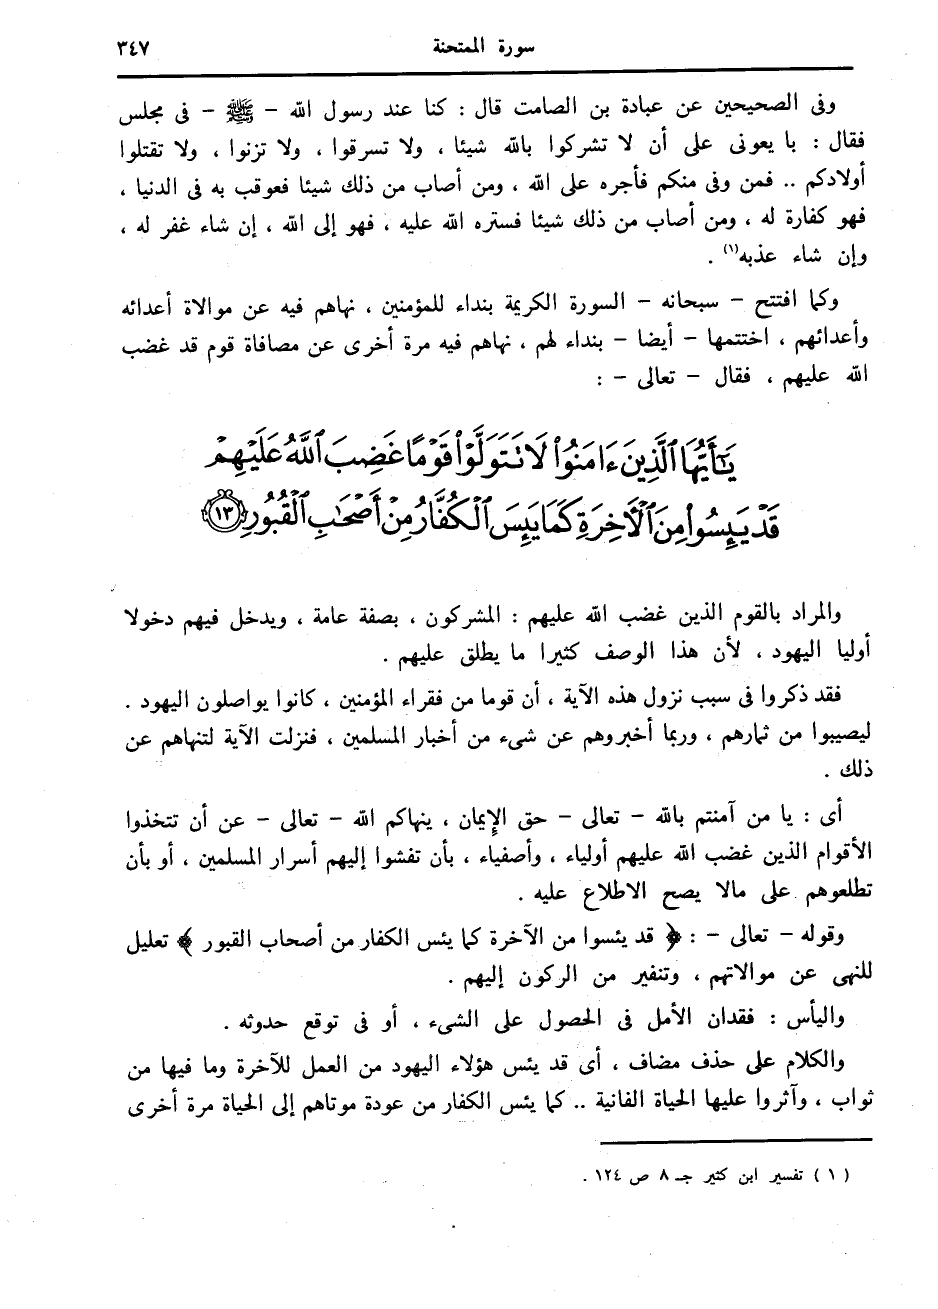 سورة الممتحنة ٣٤٧
وفى الصحيحين عن عبادة بن الصامت قال : كنا عند رسول الله – ﷺ – فى مجلس
فقال : بايعونى على أن لا تشركوا بالله شيئا ، ولا تسرقوا ، ولا تزنوا ، ولا تقتلوا
أولادكم .. فمن وفى منكم فأجره على الله ، ومن أصاب من ذلك شيئا فعوقب به فى الدنيا ،
فهو كفارة له ، ومن أصاب من ذلك شيئا فستره الله عليه ، فهو إلى الله ، إن شاء غفر له ،
وإن شاء عذبه(١) .
وكما افتتح – سبحانه – السورة الكريمة بنداء للمؤمنين ، نهاهم فيه عن موالاة أعدائه
وأعدائهم ، اختتمها – أيضا – بنداء لهم ، نهاهم فيه مرة أخرى عن مصافاة قوم قد غضب
الله عليهم ، فقال – تعالى – :
يَٰٓأَيُّهَا ٱلَّذِينَ ءَامَنُوا۟ لَا تَتَوَلَّوْا۟ قَوْمًا غَضِبَ ٱللَّهُ عَلَيْهِمْ
قَدْ يَئِسُوا۟ مِنَ ٱلْءَاخِرَةِ كَمَا يَئِسَ ٱلْكُفَّارُ مِنْ أَصْحَٰبِ ٱلْقُبُورِ ١٣
والمراد بالقوم الذين غضب الله عليهم : المشركون ، بصفة عامة ، ويدخل فيهم دخولا
أوليا اليهود ، لأن هذا الوصف كثيرا ما يطلق عليهم .
فقد ذكروا فى سبب نزول هذه الآية ، أن قوما من فقراء المؤمنين ، كانوا يواصلون اليهود .
ليصيبوا من ثمارهم ، وربما أخبروهم عن شىء من أخبار المسلمين ، فنزلت الآية لتنهاهم عن
ذلك .
أى : يا من آمنتم بالله – تعالى – حق الإيمان ، ينهاكم الله – تعالى – عن أن تتخذوا
الأقوام الذين غضب الله عليهم أولياء ، وأصفياء ، بأن تفشوا إليهم أسرار المسلمين ، أو بأن
تطلعوهم على مالا يصح الاطلاع عليه .
وقوله – تعالى – : ﴿ قد يئسوا من الآخرة كما يئس الكفار من أصحاب القبور ﴾ تعليل
للنهى عن موالاتهم ، وتنفير من الركون إليهم .
واليأس : فقدان الأمل فى الحصول على الشىء ، أو فى توقع حدوثه .
والكلام على حذف مضاف ، أى قد يئس هؤلاء اليهود من العمل للآخرة وما فيها من
ثواب ، وآثروا عليها الحياة الفانية .. كما يئس الكفار من عودة موتاهم إلى الحياة مرة أخرى
( ١ ) تفسير ابن كثير جـ ٨ ص ١٢٤ .